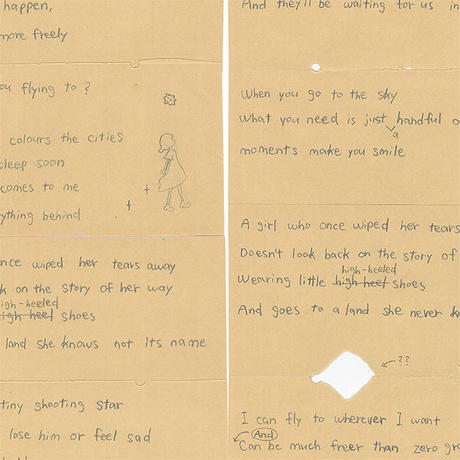 happen,
more freely
ou flying to ?
colours the cities
sleep soon
comes to me
ything behind
nce wiped her tears away
k on the story of her way
igh-heeled
igh heel shoes
land she knows not its name
tiny shooting star
lose him or feel sad
And they'll be waiting for us in
When you go to the sky
What you need is just handful o
a
moments make you smile
A girl who once wiped her tears
Doesn't look back on the story of
high-heeled
Wearing little high heel shoes
And goes to a land she never k
??
I can fly to wherever I want
And
Can be much freer than zero gra